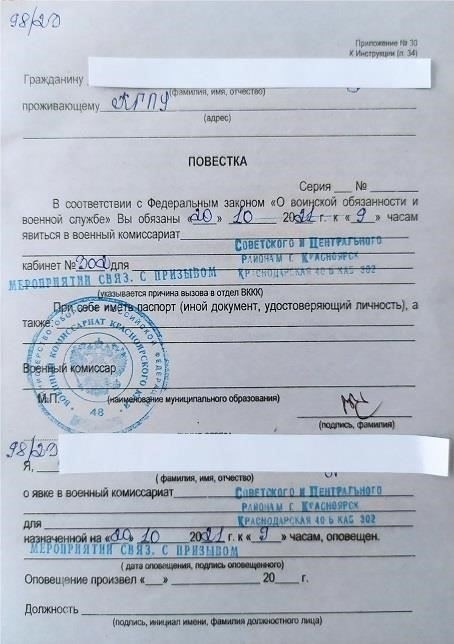 98/20
Приложение № 30
К Инструкции (п. 34)
Гражданину
(фамилия, имя, отчество)
проживающему КГПУ
(адрес)
ПОВЕСТКА
Серия ___ № ______
В соответствии с Федеральным законом «О воинской обязанности и
военной службе» Вы обязаны «20» 10 2021 г. к « 9 » часам
явиться в военный комиссариат
Советского и Центрального
кабинет № 302 для районам г. Красноярск
мероприятий связ. с призывом Краснодарская 40 Б каб 302
(указывается причина вызова в отдел ВККК)
При себе иметь паспорт (иной документ, удостоверяющий личность), а
также:
ВОЕННЫЙ КОМИССАРИАТ КРАСНОЯРСКОГО КРАЯ
48
Военный комиссар
М.П. (наименование муниципального образования)
(подпись, фамилия)
98/20
Я,
( фамилия, имя, отчество)
о явке в военный комиссариат Советского и Центрального
районам г. Красноярск
для Краснодарская 40 Б каб 302
назначенной на «20» 10 2021 г. к « 9 » часам, оповещен.
мероприятий связ. с призывом
( дата оповещения, подпись оповещенного)
Оповещение произвел «___» ____________ 20___ г.
Должность
(подпись, инициал имени, фамилия должностного лица)